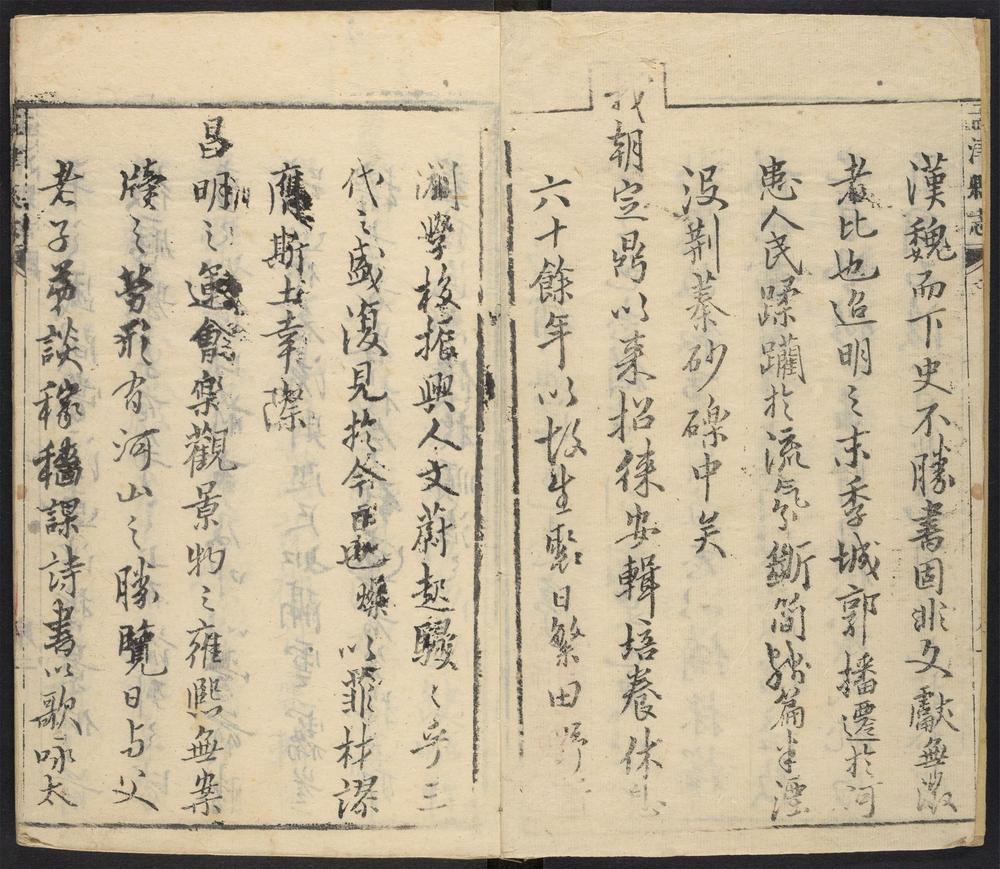 漢魏而下史不勝書固非文獻無徵
者比也迨明之末季城郭播遷於河
患人民蹂躪於流氛斷簡殘篇半湮
沒荆蓁砂礫中矣
我朝定鼎以來招徠安輯培養休
六十餘年以故生聚日繁田野
闢學校振興人文蔚起駸駸乎三
代之盛復見於今也燦以菲材謬
膺斯土幸際
昌明之運會樂觀景物之雍熙無案
牘之勞形有河山之勝覽日与父
老子弟談稼穡課詩書以歌咏太
津縣志